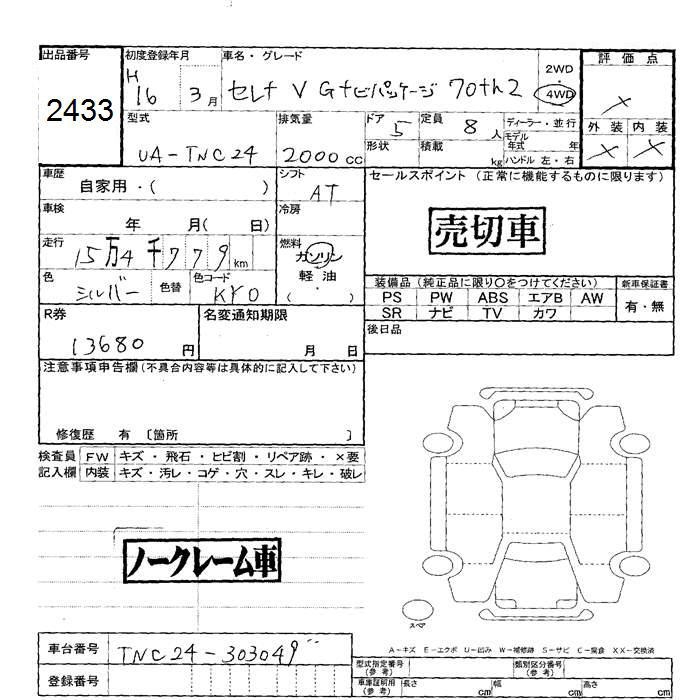 出品番号 初度登録年月 車名・グレード 評価点
2433
H16 3月
セレナ V Gナビパッケージ 70th2
2WD
4WD
×
外装 内装
× ×
型式 排気量 ドア 定員 ディーラー・並行
UA-TNC24 2000cc 5 8人
モデル年式 年
形状 積載 kg ハンドル 左・右
車歴 シフト セールスポイント (正常に機能するものに限ります)
自家用・( ) AT
車検 冷房
年 月( 日) 売切車
走行 燃料
15万4千779km ガソリン
軽油
( ・ )
色 色替 色コード
シルバー KY0
装備品 (純正品に限り〇をつけてください) 新車保証書
PS PW ABS エアB AW 有・無
SR ナビ TV カワ
R券 名変通知期限 後日品
13680円 月 日
注意事項申告欄 (不具合内容等は具体的に記入して下さい)
修復歴 有 〔箇所 〕
検査員 FW キズ・飛石・ヒビ割・リペア跡・×要
記入欄 内装 キズ・汚レ・コゲ・穴・スレ・キレ・破レ
ノークレーム車
スペア
A-キズ E-エクボ U-凹み W-補修跡 S-サビ C-腐食 XX-交換済
車台番号 TNC24-303049
登録番号
型式指定番号(参考) 類別区分番号(参考)
車庫証明用(参考) 長さ cm 幅 cm 高さ cm